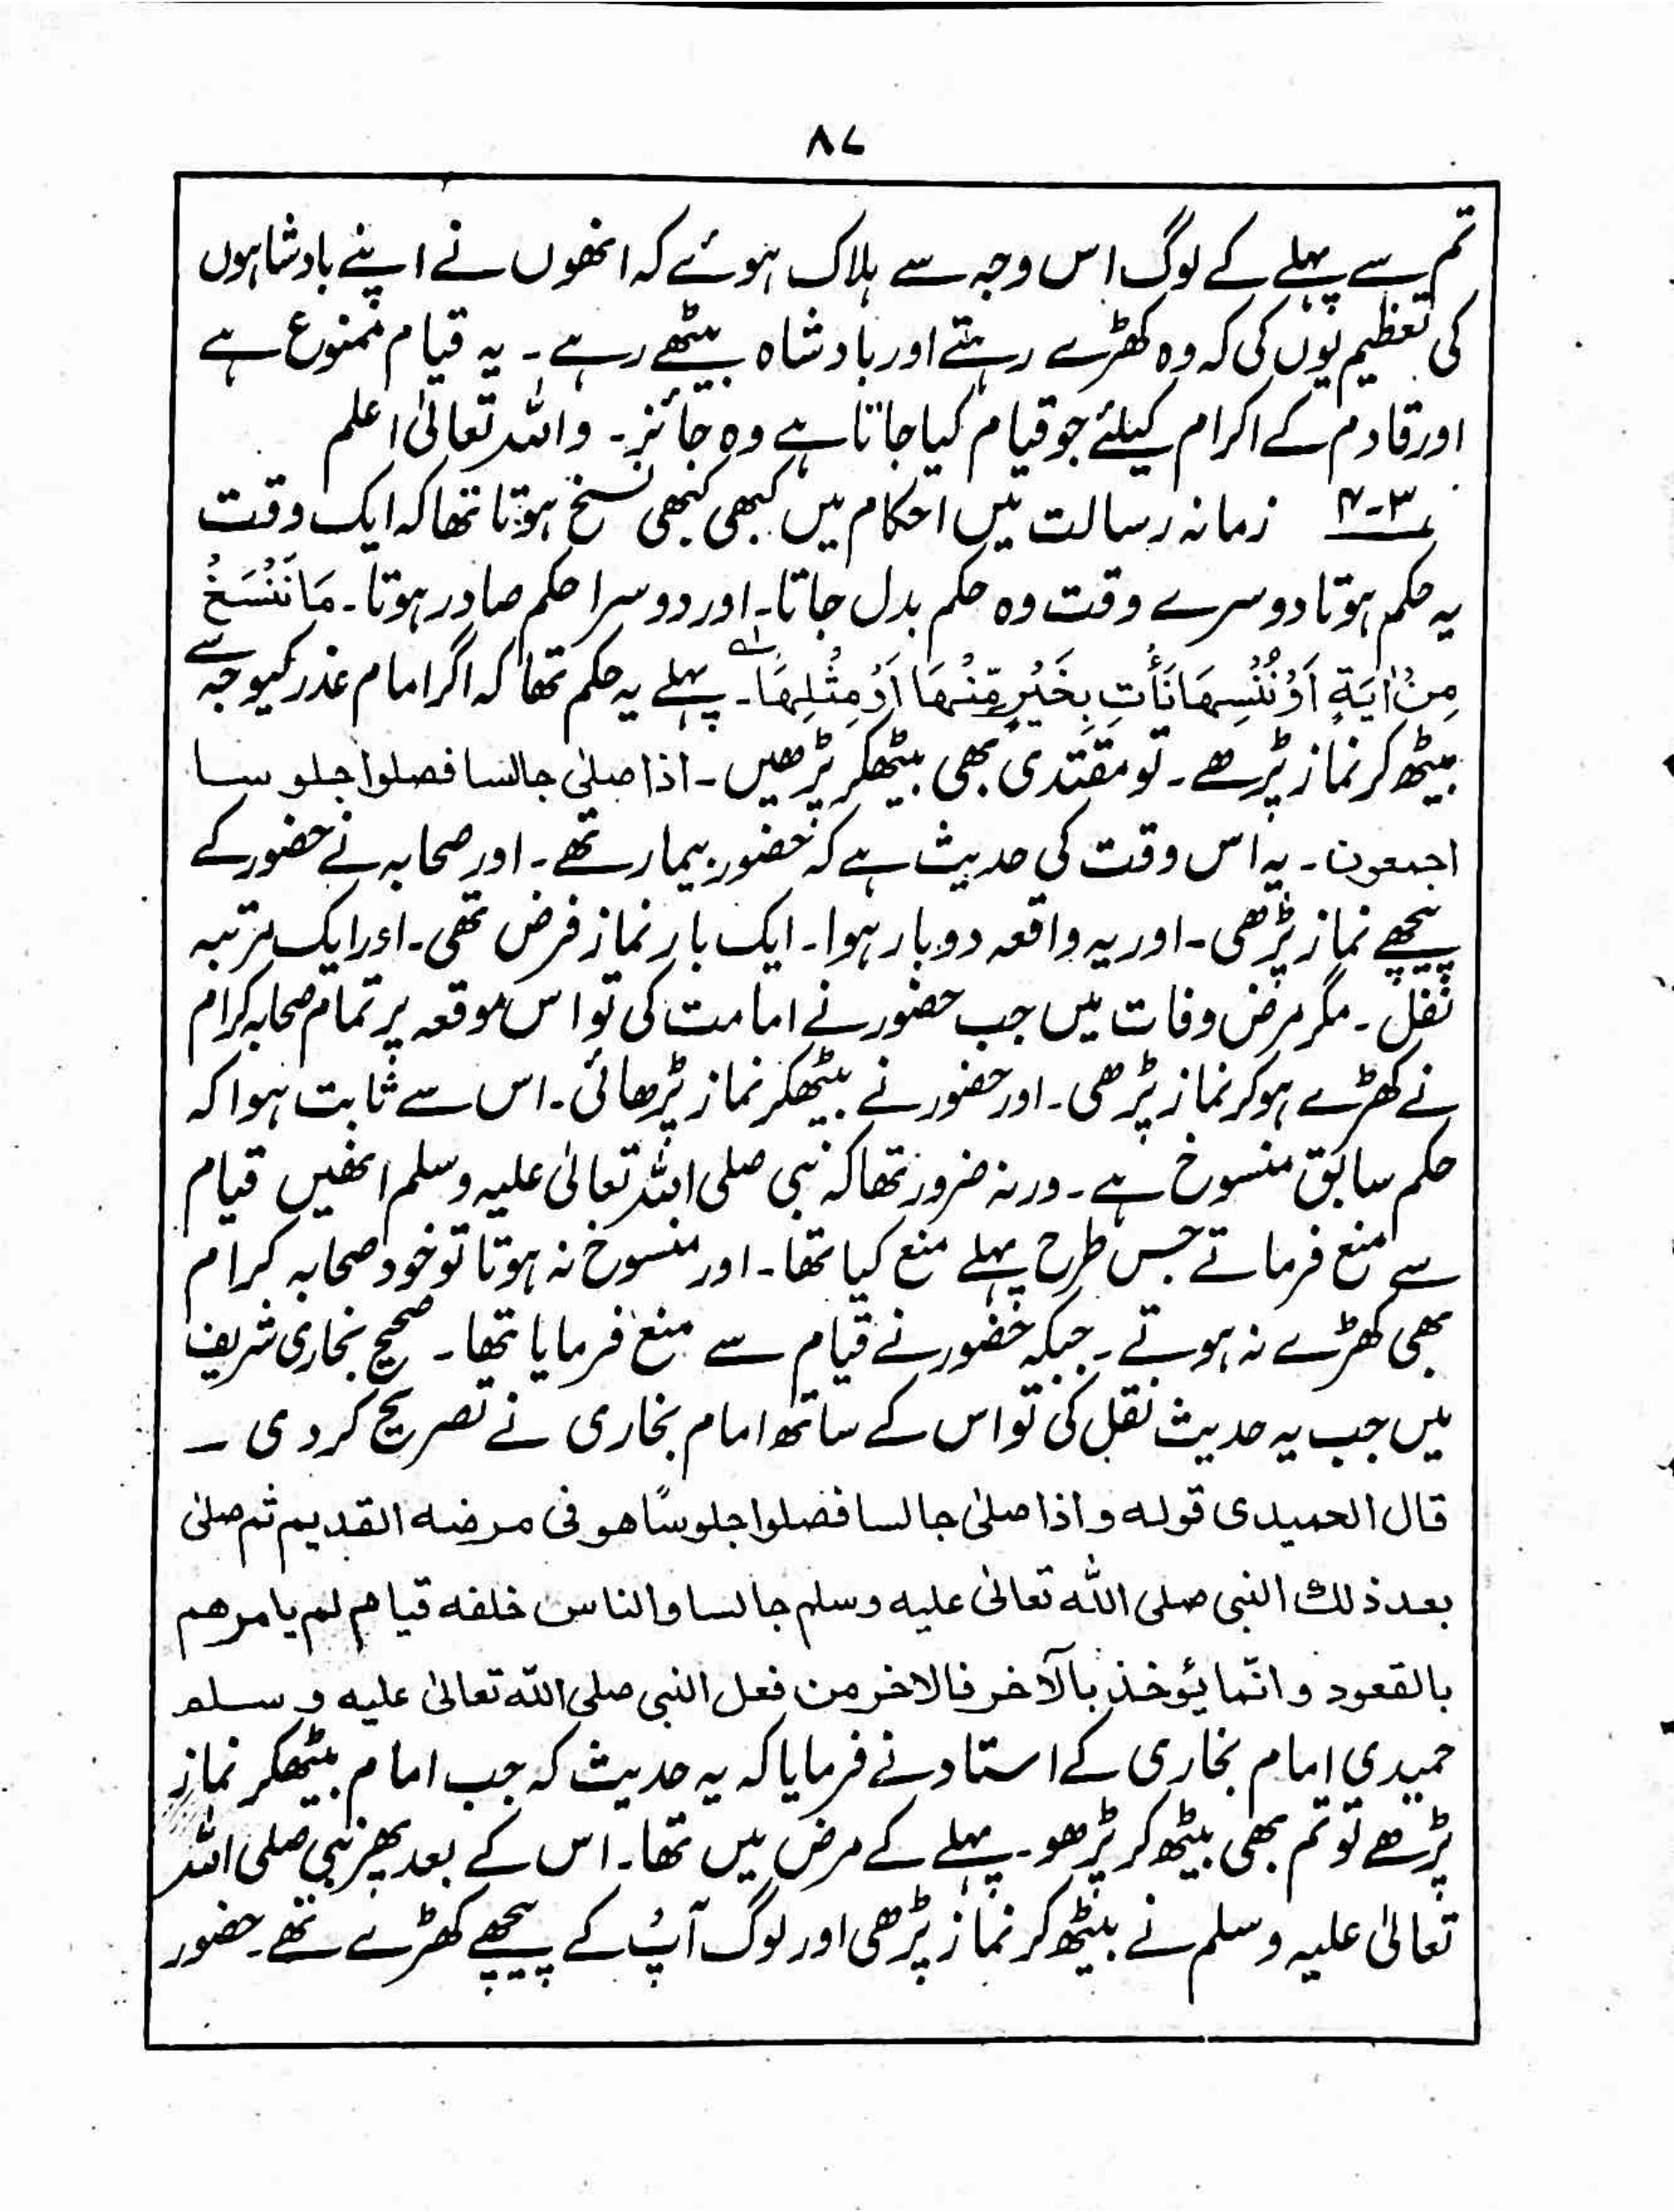 ۸۷
تم سے پہلے کے لوگ اس وجہ سے ہلاک ہوئے کہ انھوں نے اپنے بادشاہوں
کی تعظیم یوں کی کہ وہ کھڑے رہتے اور بادشاہ بیٹھے رہے ۔ یہ قیام ممنوع ہے
اور قادم کے اکرام کیلئے جو قیام کیا جاتا ہے وہ جائز ۔ واللہ تعالیٰ اعلم
۳-۴ زمانہ رسالت میں احکام میں کبھی کبھی نسخ ہوتا تھا کہ ایک وقت
یہ حکم ہوتا دوسرے وقت وہ حکم بدل جاتا ۔ اور دوسرا حکم صادر ہوتا ۔ مَا نَنْسَخْ
مِنْ اٰیَةٍ اَوْ نُنْسِهَا نَأْتِ بِخَیْرٍ مِّنْهَا اَوْ مِثْلِهَا ۔ پہلے یہ حکم تھا کہ اگر امام عذر کیوجہ سے
بیٹھ کر نماز پڑھے ۔ تو مقتدی بھی بیٹھکر پڑھیں ۔ اذا صلیٰ جالسا فصلوا جلوسا
اجمعون ۔ یہ اس وقت کی حدیث ہے کہ حضور بیمار تھے ۔ اور صحابہ نے حضور کے
پیچھے نماز پڑھی ۔ اور یہ واقعہ دو بار ہوا ۔ ایک بار نماز فرض تھی ۔ اور ایک مرتبہ
نفل ۔ مگر مرض وفات میں جب حضور نے امامت کی تو اس موقعہ پر تمام صحابہ کرام
نے کھڑے ہو کر نماز پڑھی ۔ اور حضور نے بیٹھکر نماز پڑھائی ۔ اس سے ثابت ہوا کہ
حکم سابق منسوخ ہے ۔ ورنہ ضرور تھا کہ نبی صلی اللہ تعالیٰ علیہ وسلم انھیں قیام
سے منع فرماتے جس طرح پہلے منع کیا تھا ۔ اور منسوخ نہ ہوتا تو خود صحابہ کرام
بھی کھڑے نہ ہوتے ۔ جبکہ حضور نے قیام سے منع فرمایا تھا ۔ صحیح بخاری شریف
میں جب یہ حدیث نقل کی تو اس کے ساتھ امام بخاری نے تصریح کر دی ۔
قال الحمیدی قوله و اذا صلیٰ جالسا فصلوا جلوسًا هو فی مرضه القدیم ثم صلیٰ
بعد ذلك النبی صلی اللہ تعالیٰ علیه وسلم جالسا والناس خلفه قیام لم یامرهم
بالقعود و انّما یُوخذ بالآخر فالاخر من فعل النبی صلی اللہ تعالیٰ علیه وسلم
حمیدی امام بخاری کے استاد نے فرمایا کہ یہ حدیث کہ جب امام بیٹھکر نماز
پڑھے تو تم بھی بیٹھ کر پڑھو ۔ پہلے کے مرض میں تھا ۔ اس کے بعد پھر نبی صلی اللہ
تعالیٰ علیہ وسلم نے بیٹھ کر نماز پڑھی اور لوگ آپ کے پیچھے کھڑے تھے ۔ حضور